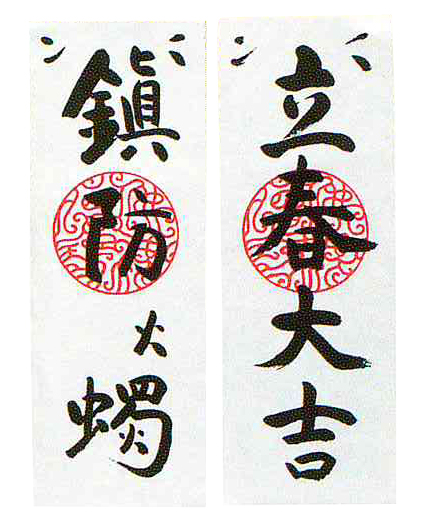 立春大吉
鎭防火燭